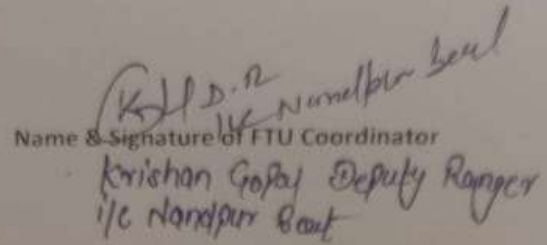 D.R
I/C Nandpur Beat
Name & Signature of FTU Coordinator
Krishan Gopal Deputy Ranger
i/c Nandpur Beat